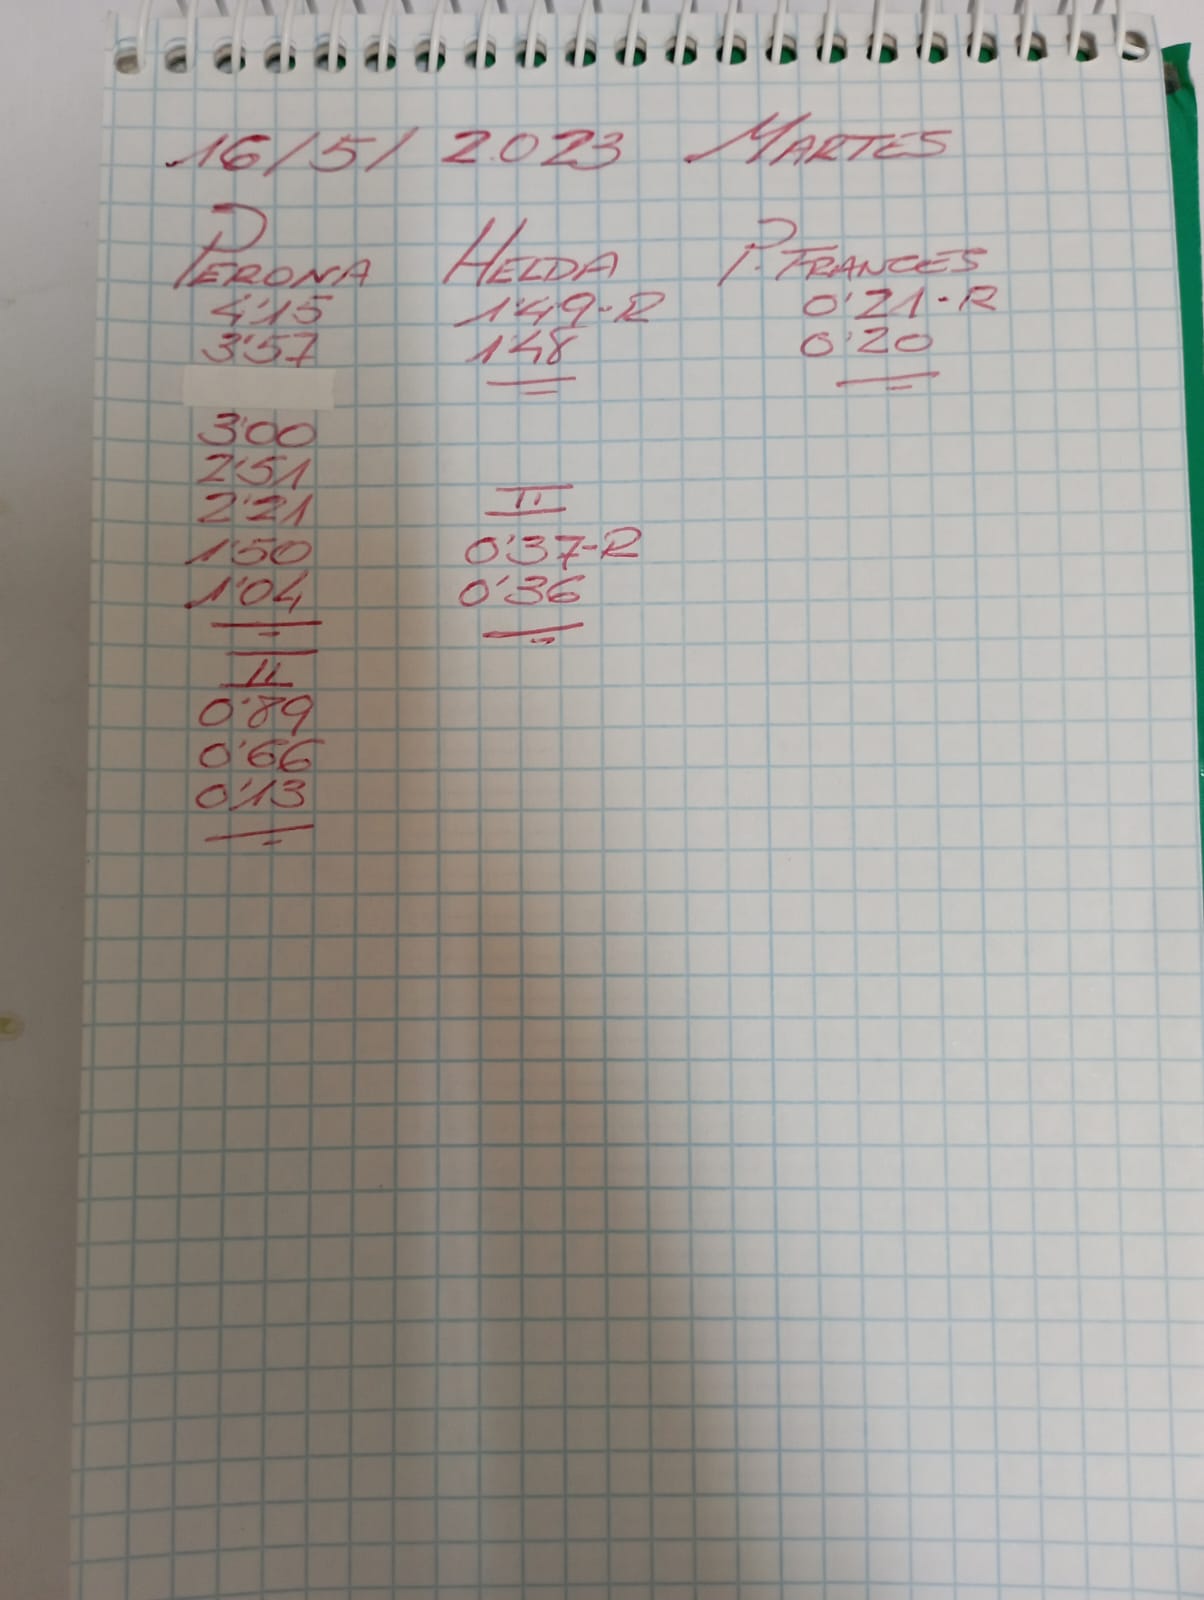 16/5/2.023 MARTES
PERONA HELDA P. FRANCES
4'15 1'49-R 0'21-R
3'57 1'48 0'20
3'00
2'51
2'21 II
1'50 0'37-R
1'04 0'36
II
0'89
0'66
0'13